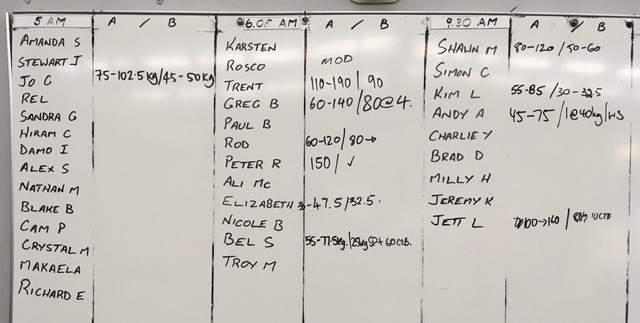 5 AM A / B
AMANDA S
STEWART J
JO G 75-102.5kg/45-50kg
REL
SANDRA G
HIRAM C
DAMO I
ALEX S
NATHAN M
BLAKE B
CAM P
CRYSTAL M
MAKAELA
RICHARD E
6.05 AM A / B
KARSTEN
ROSCO MOD
TRENT 110-190 / 90
GREG B 60-140 / 80@4.
PAUL B
ROD 60-120/80→
PETER R 150 / ✓
ALI MC
ELIZABETH -47.5/32.5.
NICOLE B
BEL S 55-77.5kg. /
TROY M
9.30 AM A / B
SHAWN M 80-120 / 50-60
SIMON C
KIM L 55-85 / 30-32.5
ANDY A 45-75 / 1@40kg/WS
CHARLIE Y
BRAD D
MILLY H
JEREMY K
JETT L 100→140 /